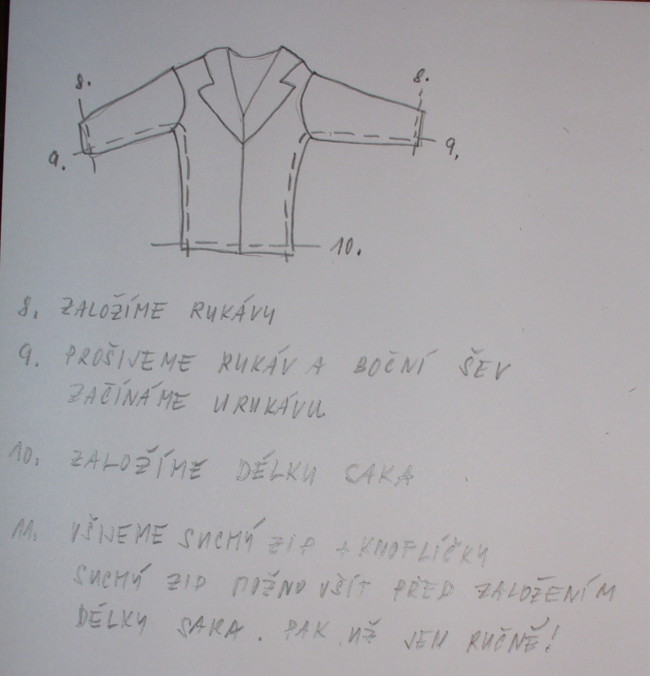 8.
8.
9.
9.
10.
8. ZALOŽÍME RUKÁVY
9. PROŠIJEME RUKÁV A BOČNÍ ŠEV
ZAČÍNÁME U RUKÁVU
10. ZALOŽÍME DÉLKU SAKA
11. VŠIJEME SUCHÝ ZIP + KNOFLÍČKY
SUCHÝ ZIP MOŽNO VŠÍT PŘED ZALOŽENÍM
DÉLKY SAKA. PAK UŽ JEN RUČNĚ!